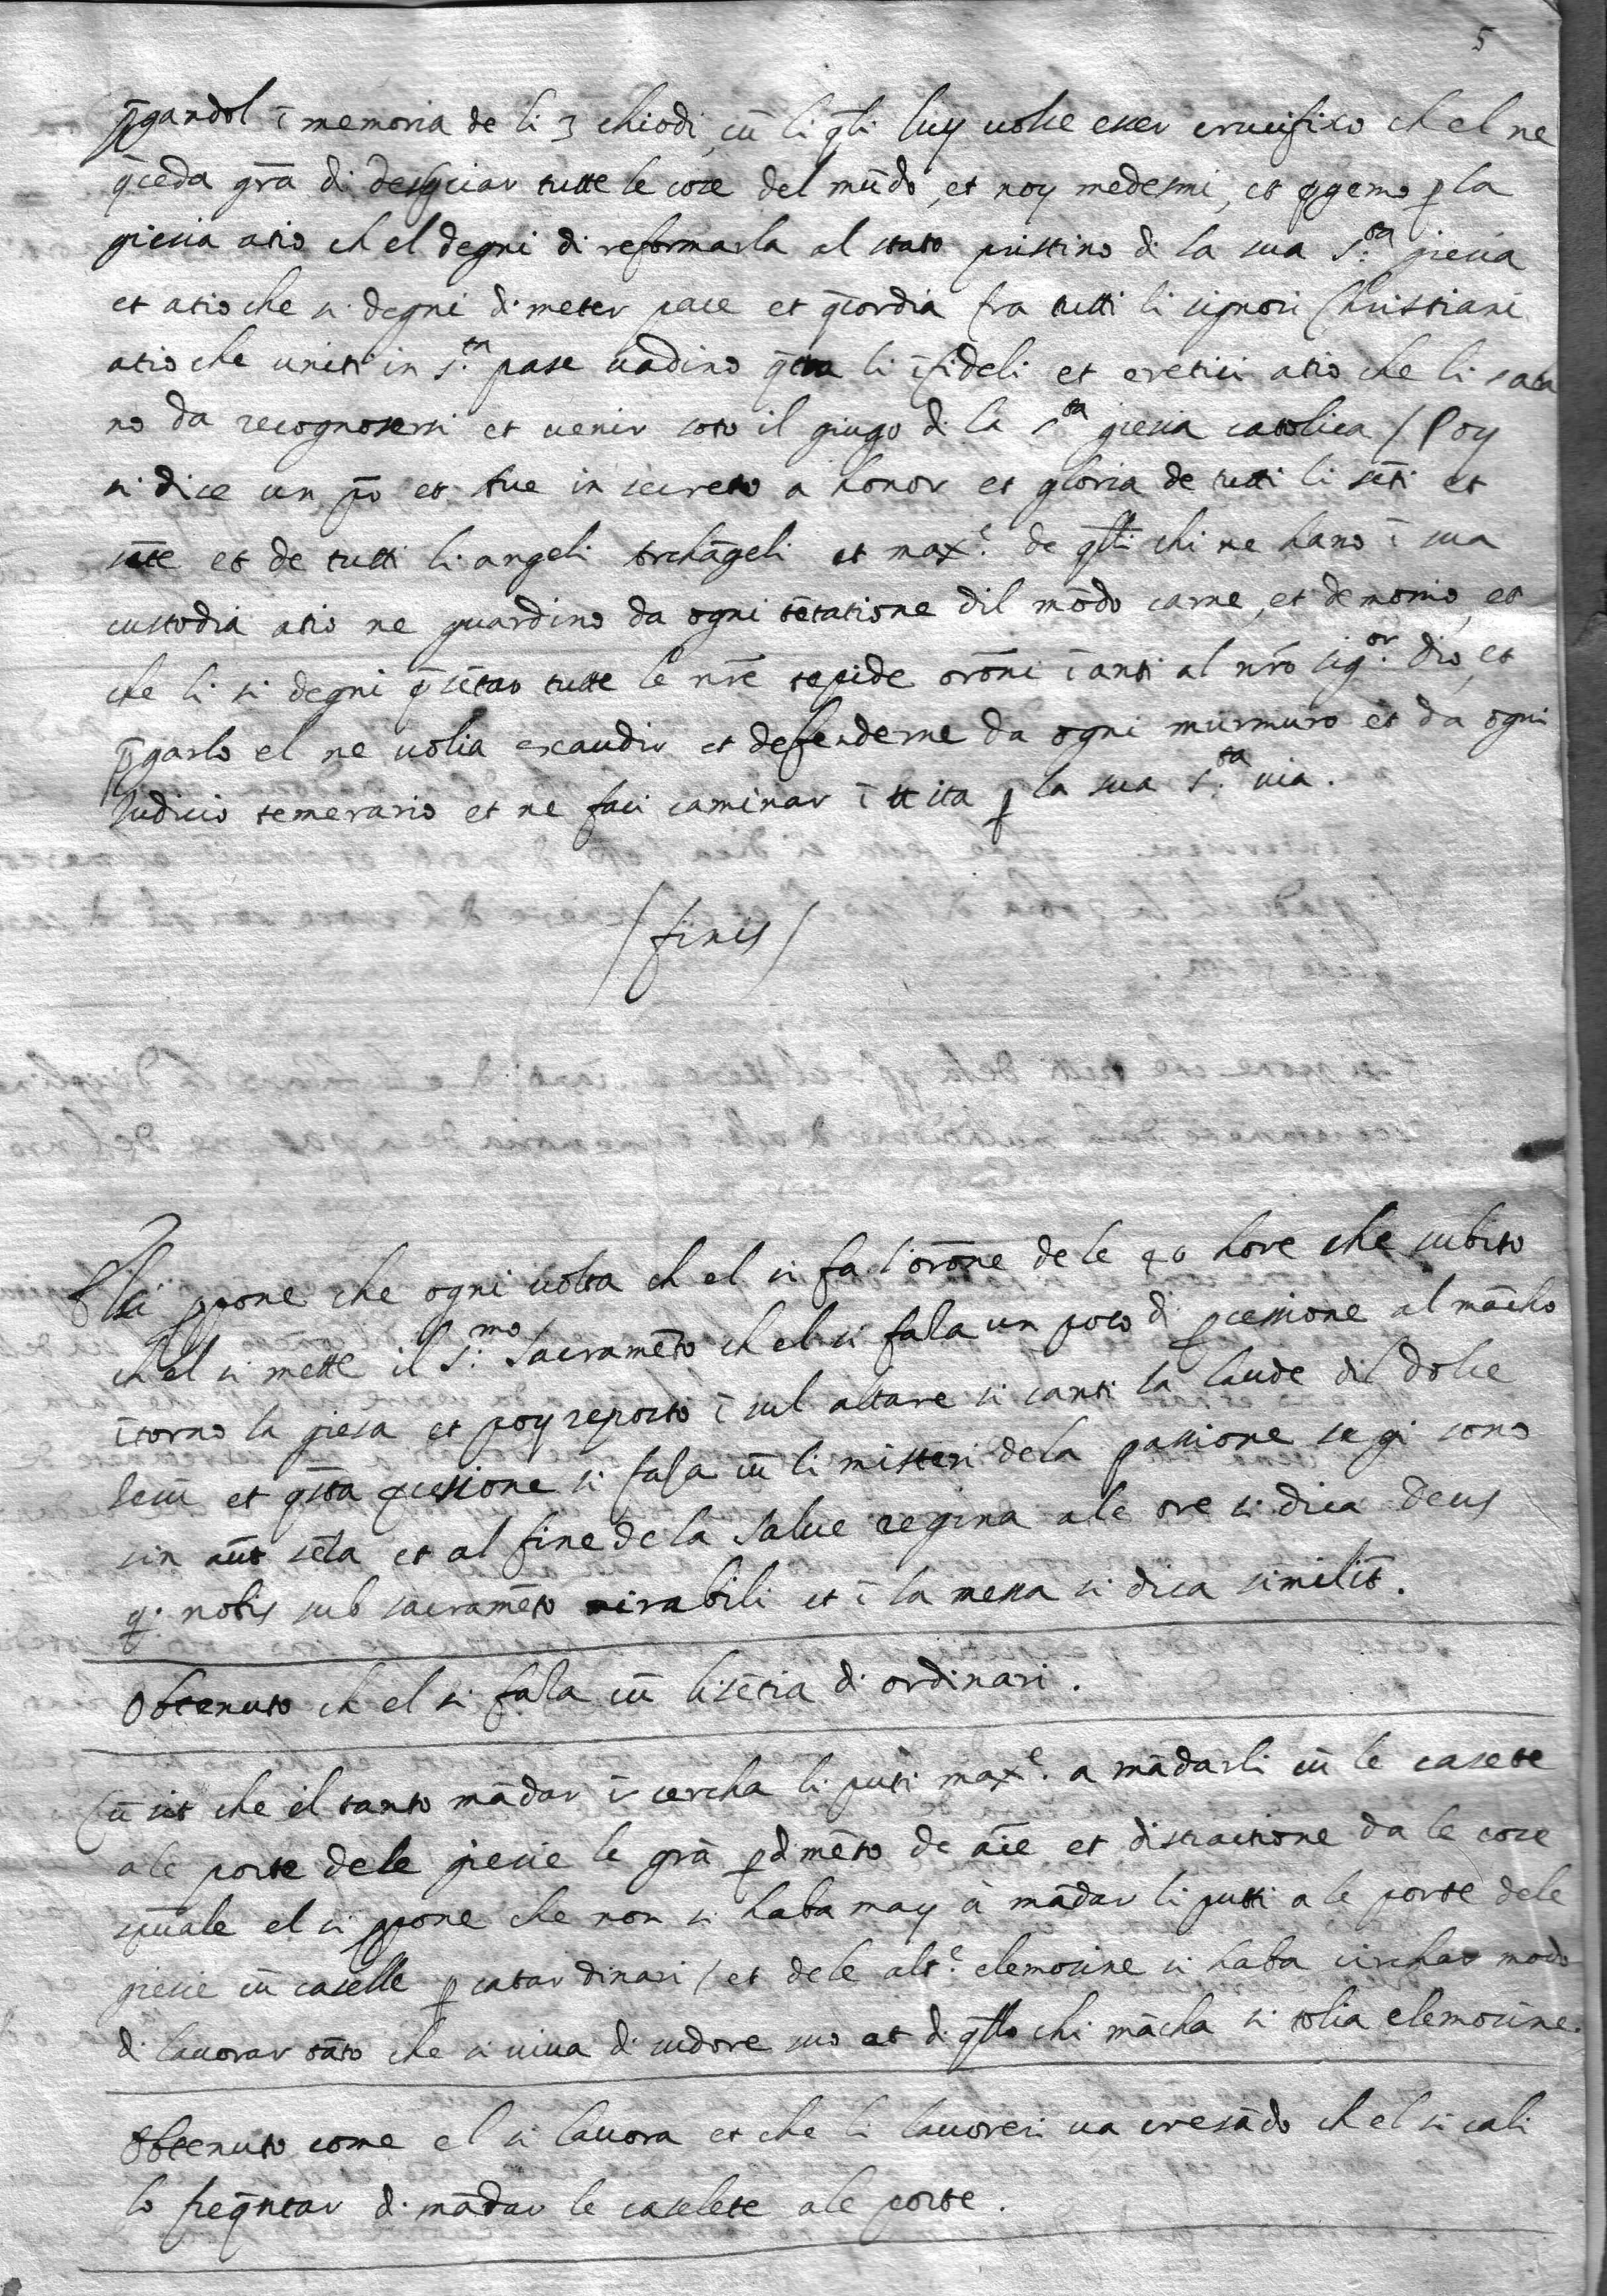 5
p̄gandol ī memoria de li 3 chiodi, cū li q̄li luy uolse esser crucifixo ch el ne
q̄ceda gr̄a di despciar tutte le cose del mūdo, et noy medesmi, et p̄gemo ꝑ la
giesia atio ch el degni di reformarla al stato pristino di la sua s.ta giesia
et atio che si degni di meter pace et q̄cordia fra tutti li signori Christiani
atio che uniti in s.ta pase uadino q̄tra li īfideli et eretici atio che li saca
no da recognosersi et uenir soto il giugo di la s.ta giesia catolica / Poy
si dice un p̄r et aue in secreto a honor et gloria de tutti li sc̄ti et
sc̄te et de tutti li angeli archāgeli et max.e de q̄lli chi ne hano ī sua
custodia atio ne guardino da ogni tētatione dil mōdo carne, et demonio, et
che li si degni p̄sētar tutte le nr̄e tepide orōni īanti al nr̄o sig.or dio, et
p̄garlo el ne uolia exaudir et defenderne da ogni murmuro et da ogni
Iudicio temerario et ne faci caminar ī ꝑ la sua s.ta uia.
/ finis /
El si ꝓpone che ogni uolta ch el si fa l'orōne de le 40 hore che subito
ch el si mette il S.mo Sacramēto ch el si faLa un poco di ꝓcessione al mācho
ītorno la giesa et poy reporto ī sul altare si canti la laude dil dolce
Iesū et q̄sta ꝓcessione si faLa cū li misteri dela passione se gi sono
sin aūt scēla et al fine de la Salue regina ale ore si dica Deus
q. nobis sub sacramēto mirabili et ī la messa si dica similit̄.
Obtenuto ch el si faLa cū lisētia di ordinari.
Cū sit che il tanto mādar ī cercha li puti max.e a mādarli cū le casete
ale porte dele giesie le grā ꝑdimēto de aīe et distractione da le cose
sp̄uale el si ꝓpone che non si haba may à mādar li putti a le porte dele
giesie cū caselle ꝑ catar dinari / et dele alt.e elemosine si haba circhar modo
di lauorar tāto che si uiua di sudore suo et di q̄llo chi mācha si tolia elemosine.
Obtenuto come el si lauora et che li lauoreri ua cresādo ch el si cali
lo freq̄ntar di mādar le caselete ale porte.